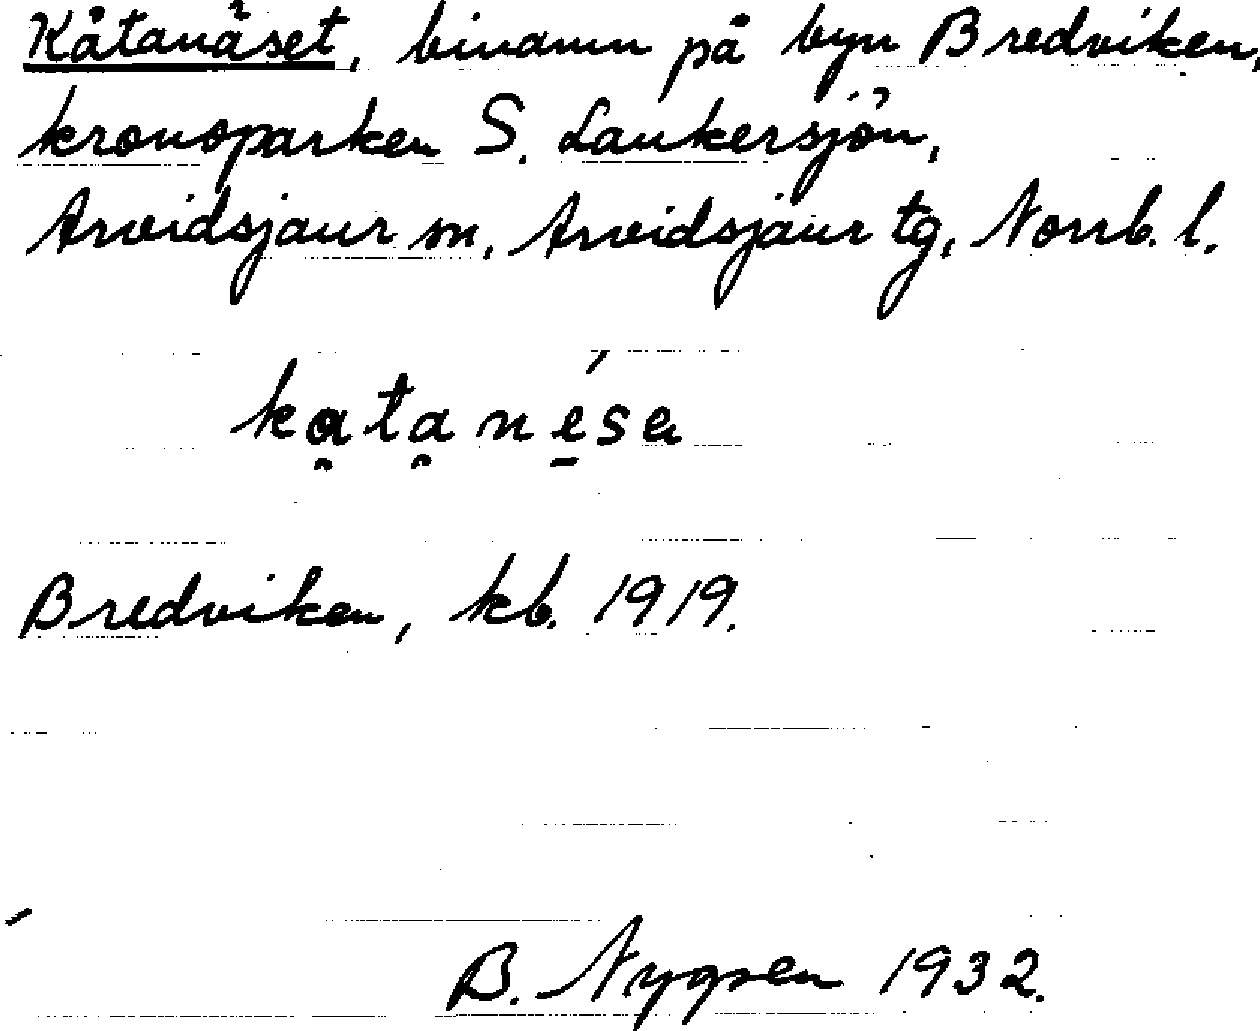 Kåtanäset, binamn på byn Bredviken,
kronoparken S. Laukersjön,
Arvidsjaur sn, Arvidsjaur tg, Norrb. l.
kạtạnẹ́sa
Bredviken, kb. 1919.
B. Nygren 1932.